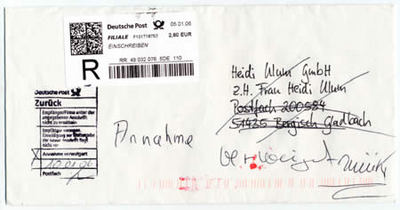 Deutsche Post
05.01.06
FILIALE
2,60 EUR
EINSCHREIBEN
R
RR 49 032 076 5DE 110
Deutsche Post
Zurück
Empfänger/Firma unter der
angegebenen Anschrift
nicht zu ermitteln
Annahme verweigert
10.01.06
Postfach
Heidi Wum GmbH
z.H. Frau Heidi Wum
Postfach 200554
51435 Bergisch Gladbach
Annahme
verweigert
zurück